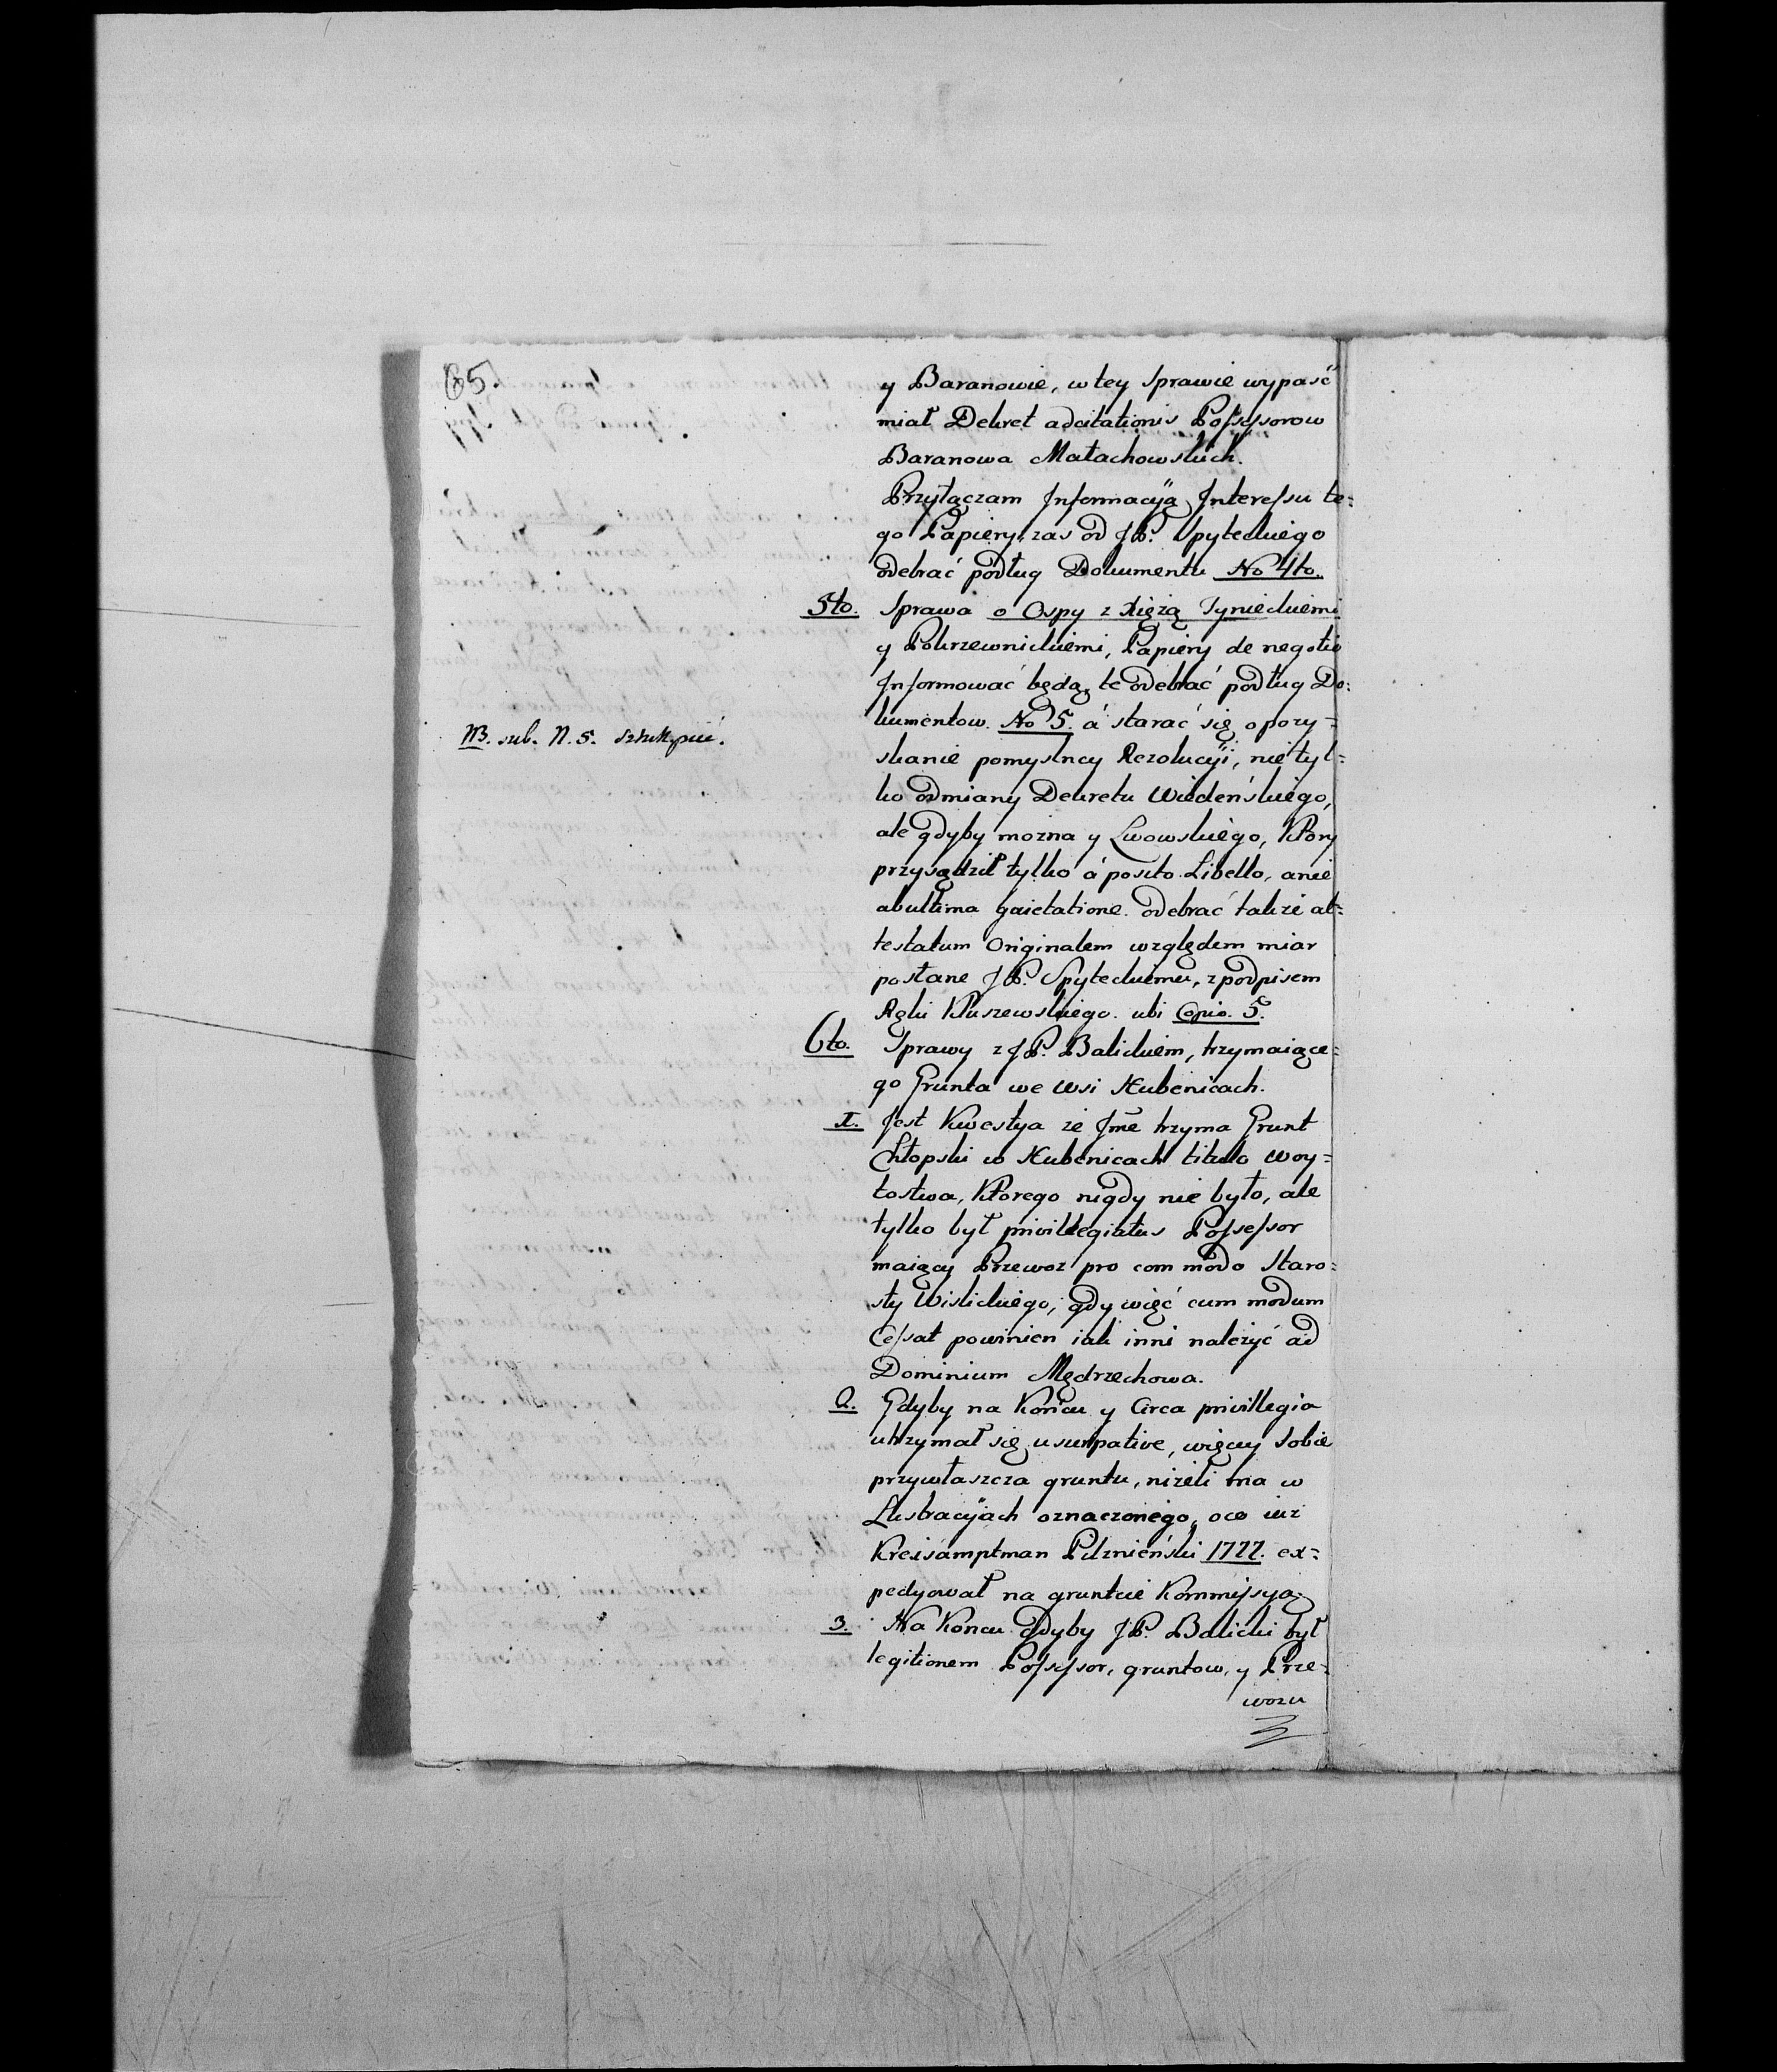 65.
y Baranowie, w tey Sprawie wypaść
miał Dekret adcitationis Possessorow
Baranowa Małachowskich.
Przyłączam Informacyią Interessu te=
go Papiery zas od JP. Spyteckiego
odebrać podług Dokumentu No 4to.
5to. Sprawa o Ospy z Xiężą Tynieckiemi
y Pokrzewnickiemi, Papiery de negotio
Informować będą, te odebrać podług Do=
kumentow No 5. á starać się o pozy=
NB. sub. N. 5.
skanie pomyslney Rezolucyi, nie tyl=
ko odmiany Dekretu Wiedeńskiego,
ale gdyby mozna y Lwowskiego, Ktory
przysądził tylko á posito Libello, a nie
ab ultima odebrać takze at=
testatum Originalem względem miar
posłane JP. Spyteckiemu, z podpisem
Ręki Kluszewskiego. ubi Copia. 5.
6to. Sprawy z JP. Balickiem, trzymaiące=
go Grunta we Wsi Hubenicach.
I. Jest Kwestya ze Jmć trzyma Grunt
Chłopski w Hubenicach titulo Woy=
tostwa, Ktorego nigdy nie było, ale
tylko był privillegiatus Possessor
maiący Przewoz pro commodo Staro=
sty Wislickiego, gdy więć cummodum
Cessat powinien iak inni należyć ad
Dominium Mędrzechowa.
2. Gdyby na Końcu y Circa privillegia
utrzymał się usurpative, więcey Sobie
przywłaszcza gruntu, niżeli ma w
Lustracyiach oznaczonego, o co iuz
Kreisamptman Pilznieński 1777. ex=
pedyował na gruntcie Kommissyą
3. Na Koncu gdyby JP. Balicki był
legitionem Possessor, gruntow, y Prze=
wozu